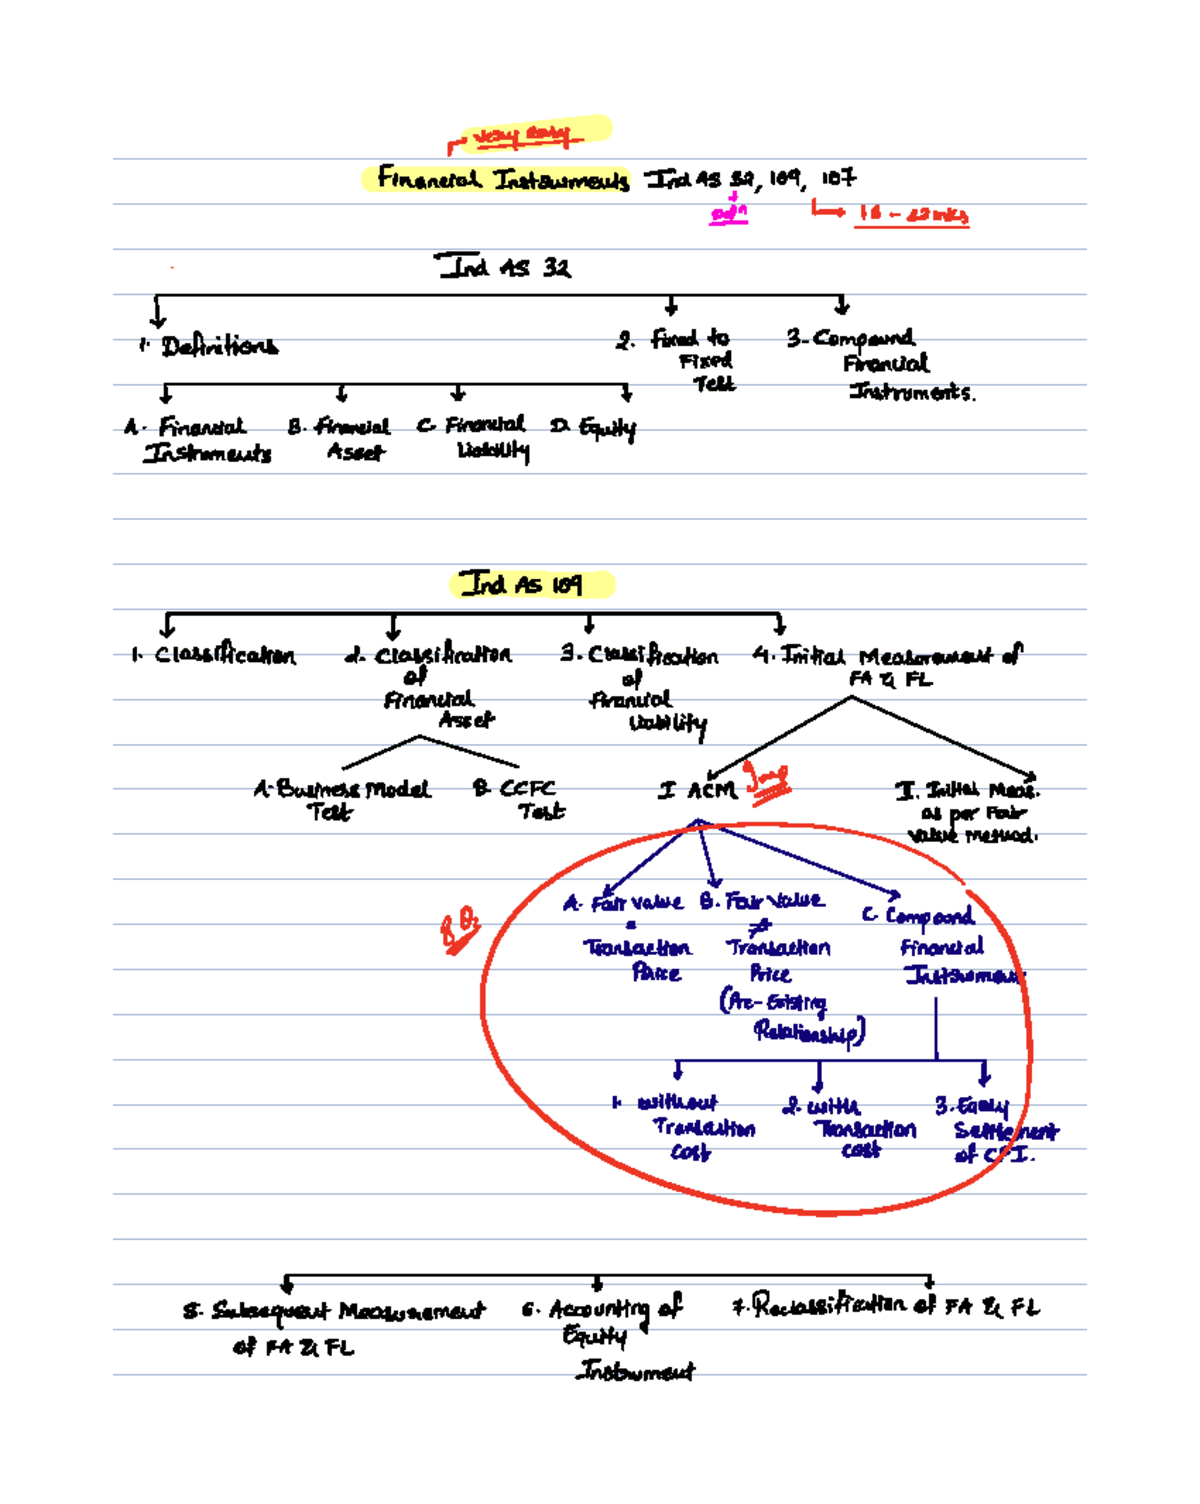 Very easy
Financial Instruments Ind AS 32, 109, 107
defn
18 - 22 mks
Ind AS 32
1. Definitions
2. Fixed to
Fixed
Test
3. Compound
Financial
Instruments.
A. Financial
Instruments
B. Financial
Asset
C. Financial
Liability
D. Equity
Ind AS 109
1. Classification
2. Classification
of
Financial
Asset
3. Classification
of
Financial
Liability
4. Initial Measurement of
FA & FL
A. Business Model
Test
B. CCFC
Test
I ACM
Imp
II. Initial Meas.
as per Fair
Value Method.
8 Qs
A. Fair value
=
Transaction
Price
B. Fair Value
≠
Transaction
Price
(Pre-Existing
Relationship)
C. Compound
Financial
Instrument
1. without
Transaction
cost
2. with
Transaction
cost
3. Early
Settlement
of CFI.
5. Subsequent Measurement
of FA & FL
6. Accounting of
Equity
Instrument
7. Reclassification of FA & FL